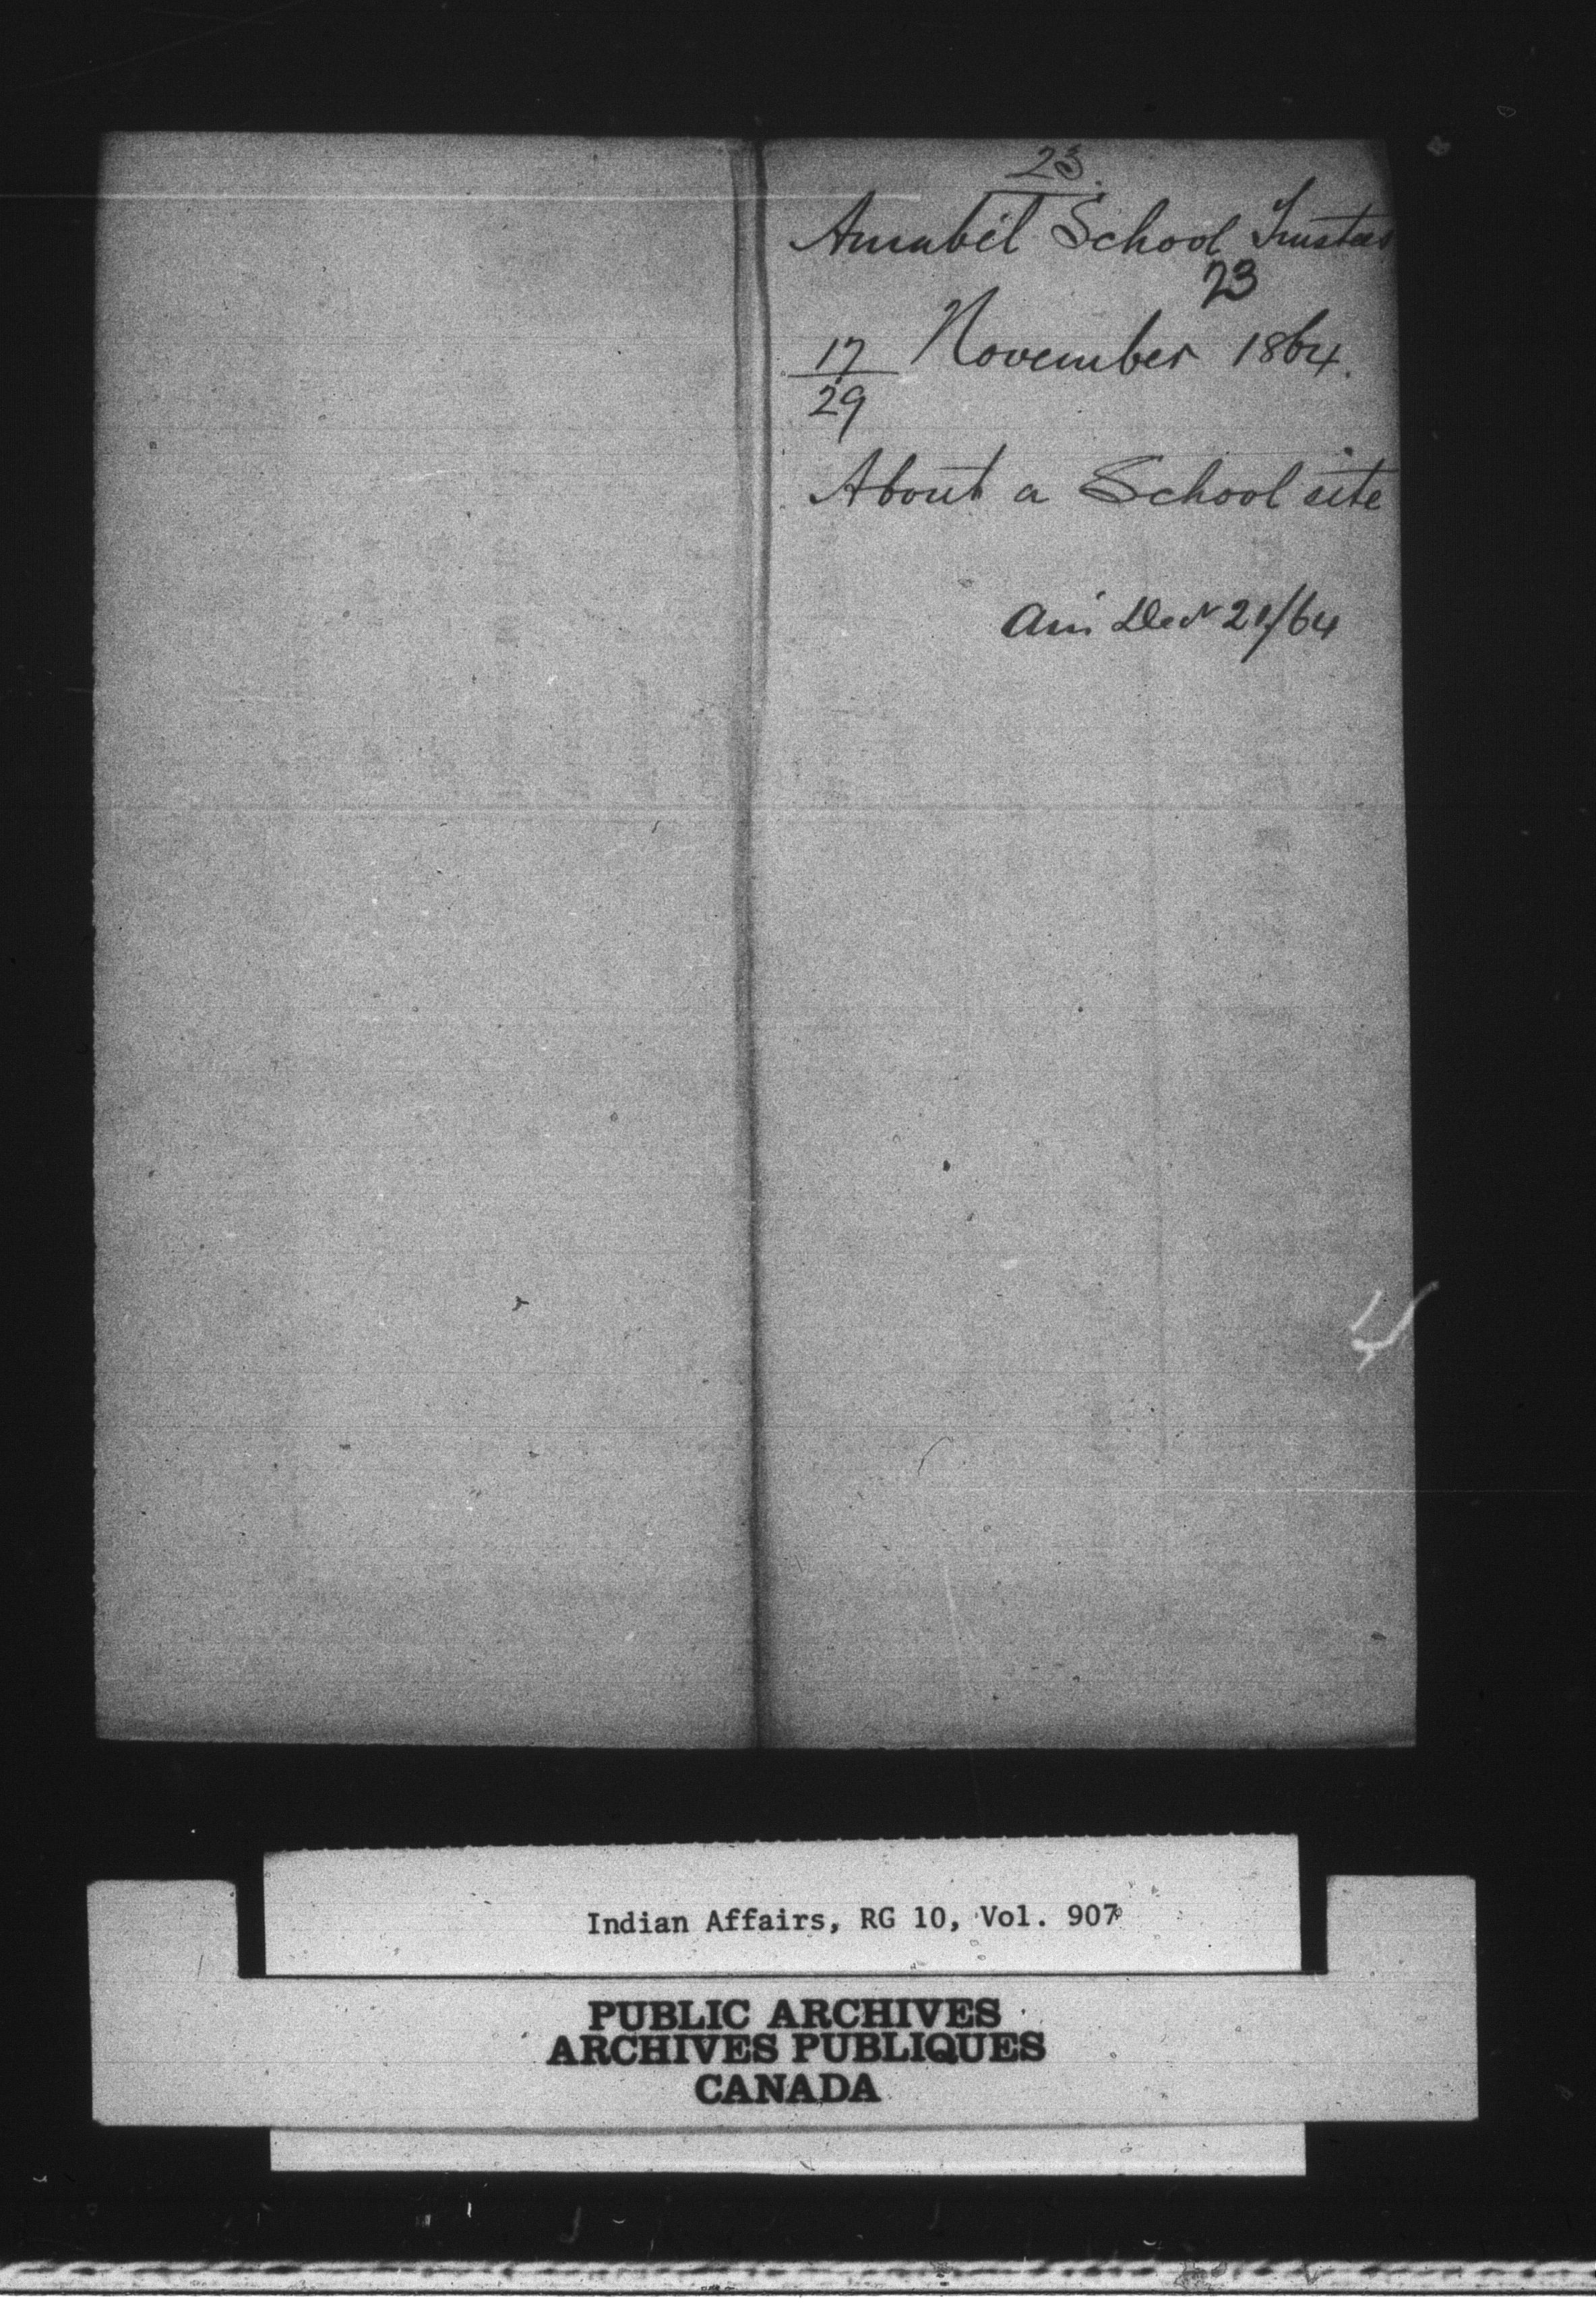 23.
Amabel School Trustees
23
17 November 1864.
29
About a School site
Dec 21/64
Indian Affairs, RG 10, Vol. 907
PUBLIC ARCHIVES
ARCHIVES PUBLIQUES
CANADA